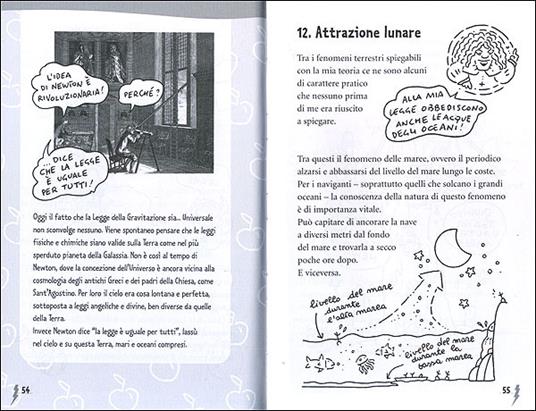 L'IDEA
DI NEWTON È
RIVOLUZIONARIA!
PERCHÉ?
...DICE
CHE LA LEGGE
È UGUALE
PER TUTTI!
Oggi il fatto che la Legge della Gravitazione sia... Universale
non sconvolge nessuno. Viene spontaneo pensare che le leggi
fisiche e chimiche siano valide sulla Terra come nel più
sperduto pianeta della Galassia. Non è così al tempo di
Newton, dove la concezione dell'Universo è ancora vicina alla
cosmologia degli antichi Greci e dei padri della Chiesa, come
Sant'Agostino. Per loro il cielo era cosa lontana e perfetta,
sottoposta a leggi angeliche e divine, ben diverse da quelle
della Terra.
Invece Newton dice "la legge è uguale per tutti", lassù
nel cielo e su questa Terra, mari e oceani compresi.
54
12. Attrazione lunare
Tra i fenomeni terrestri spiegabili
con la mia teoria ce ne sono alcuni
di carattere pratico
che nessuno prima
di me era riuscito
a spiegare.
ALLA MIA
LEGGE OBBEDISCONO
ANCHE LE ACQUE
DEGLI OCEANI!
Tra questi il fenomeno delle maree, ovvero il periodico
alzarsi e abbassarsi del livello del mare lungo le coste.
Per i naviganti – soprattutto quelli che solcano i grandi
oceani – la conoscenza della natura di questo fenomeno
è di importanza vitale.
Può capitare di ancorare la nave
a diversi metri dal fondo
del mare e trovarla a secco
poche ore dopo.
E viceversa.
livello del mare
durante
l'alta marea
livello del mare
durante la
bassa marea
55